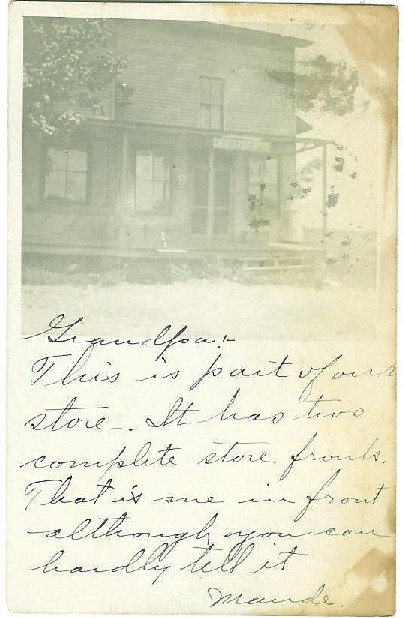 CHESTER POST OFFICE
Grandpa:-
This is part of our
store. It has two
complete store fronts.
That is me in front
although you can
hardly tell it
Maude